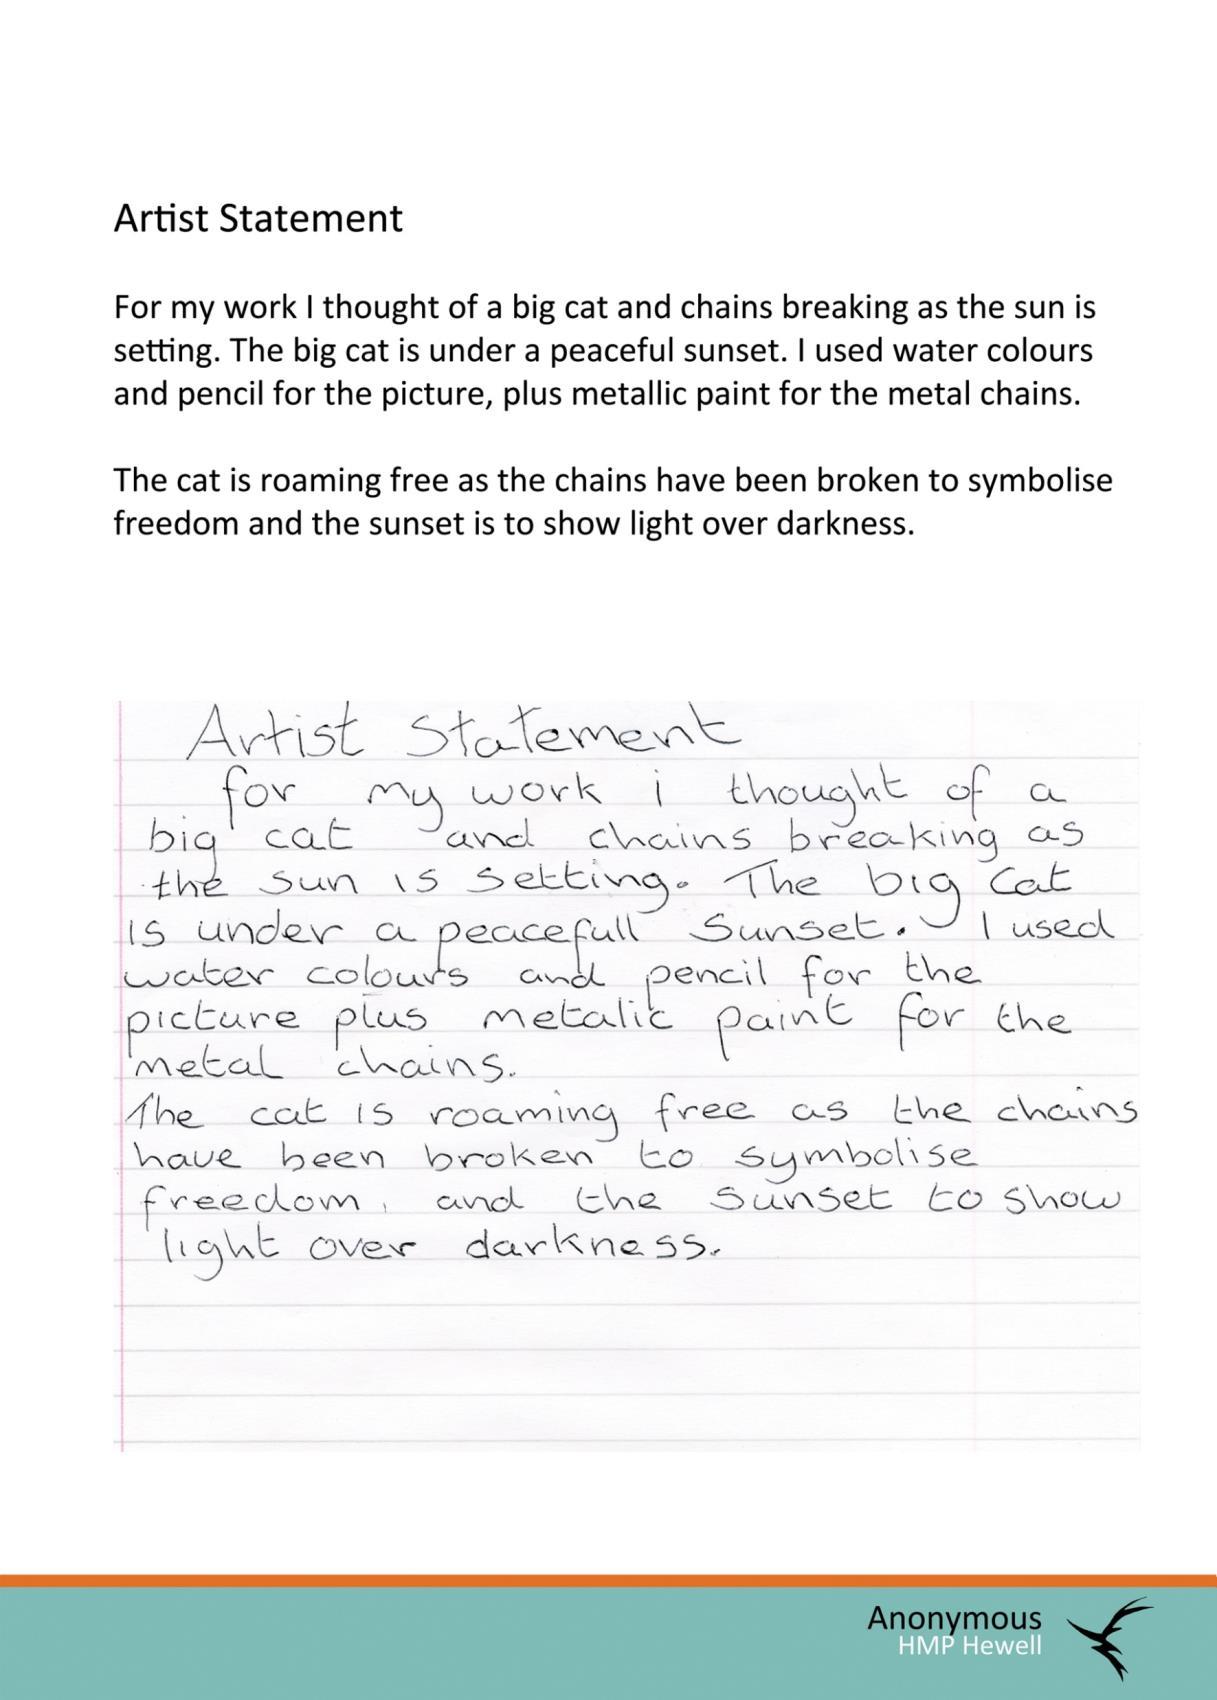 Artist Statement
For my work I thought of a big cat and chains breaking as the sun is
setting. The big cat is under a peaceful sunset. I used water colours
and pencil for the picture, plus metallic paint for the metal chains.
The cat is roaming free as the chains have been broken to symbolise
freedom and the sunset is to show light over darkness.
Artist Statement
for my work i thought of a
big cat and chains breaking as
the sun is setting. The big Cat
is under a peacefull Sunset. I used
water colours and pencil for the
picture plus metalic paint for the
metal chains.
The cat is roaming free as the chains
have been broken to symbolise
freedom, and the sunset to show
light over darkness.
Anonymous
HMP Hewell